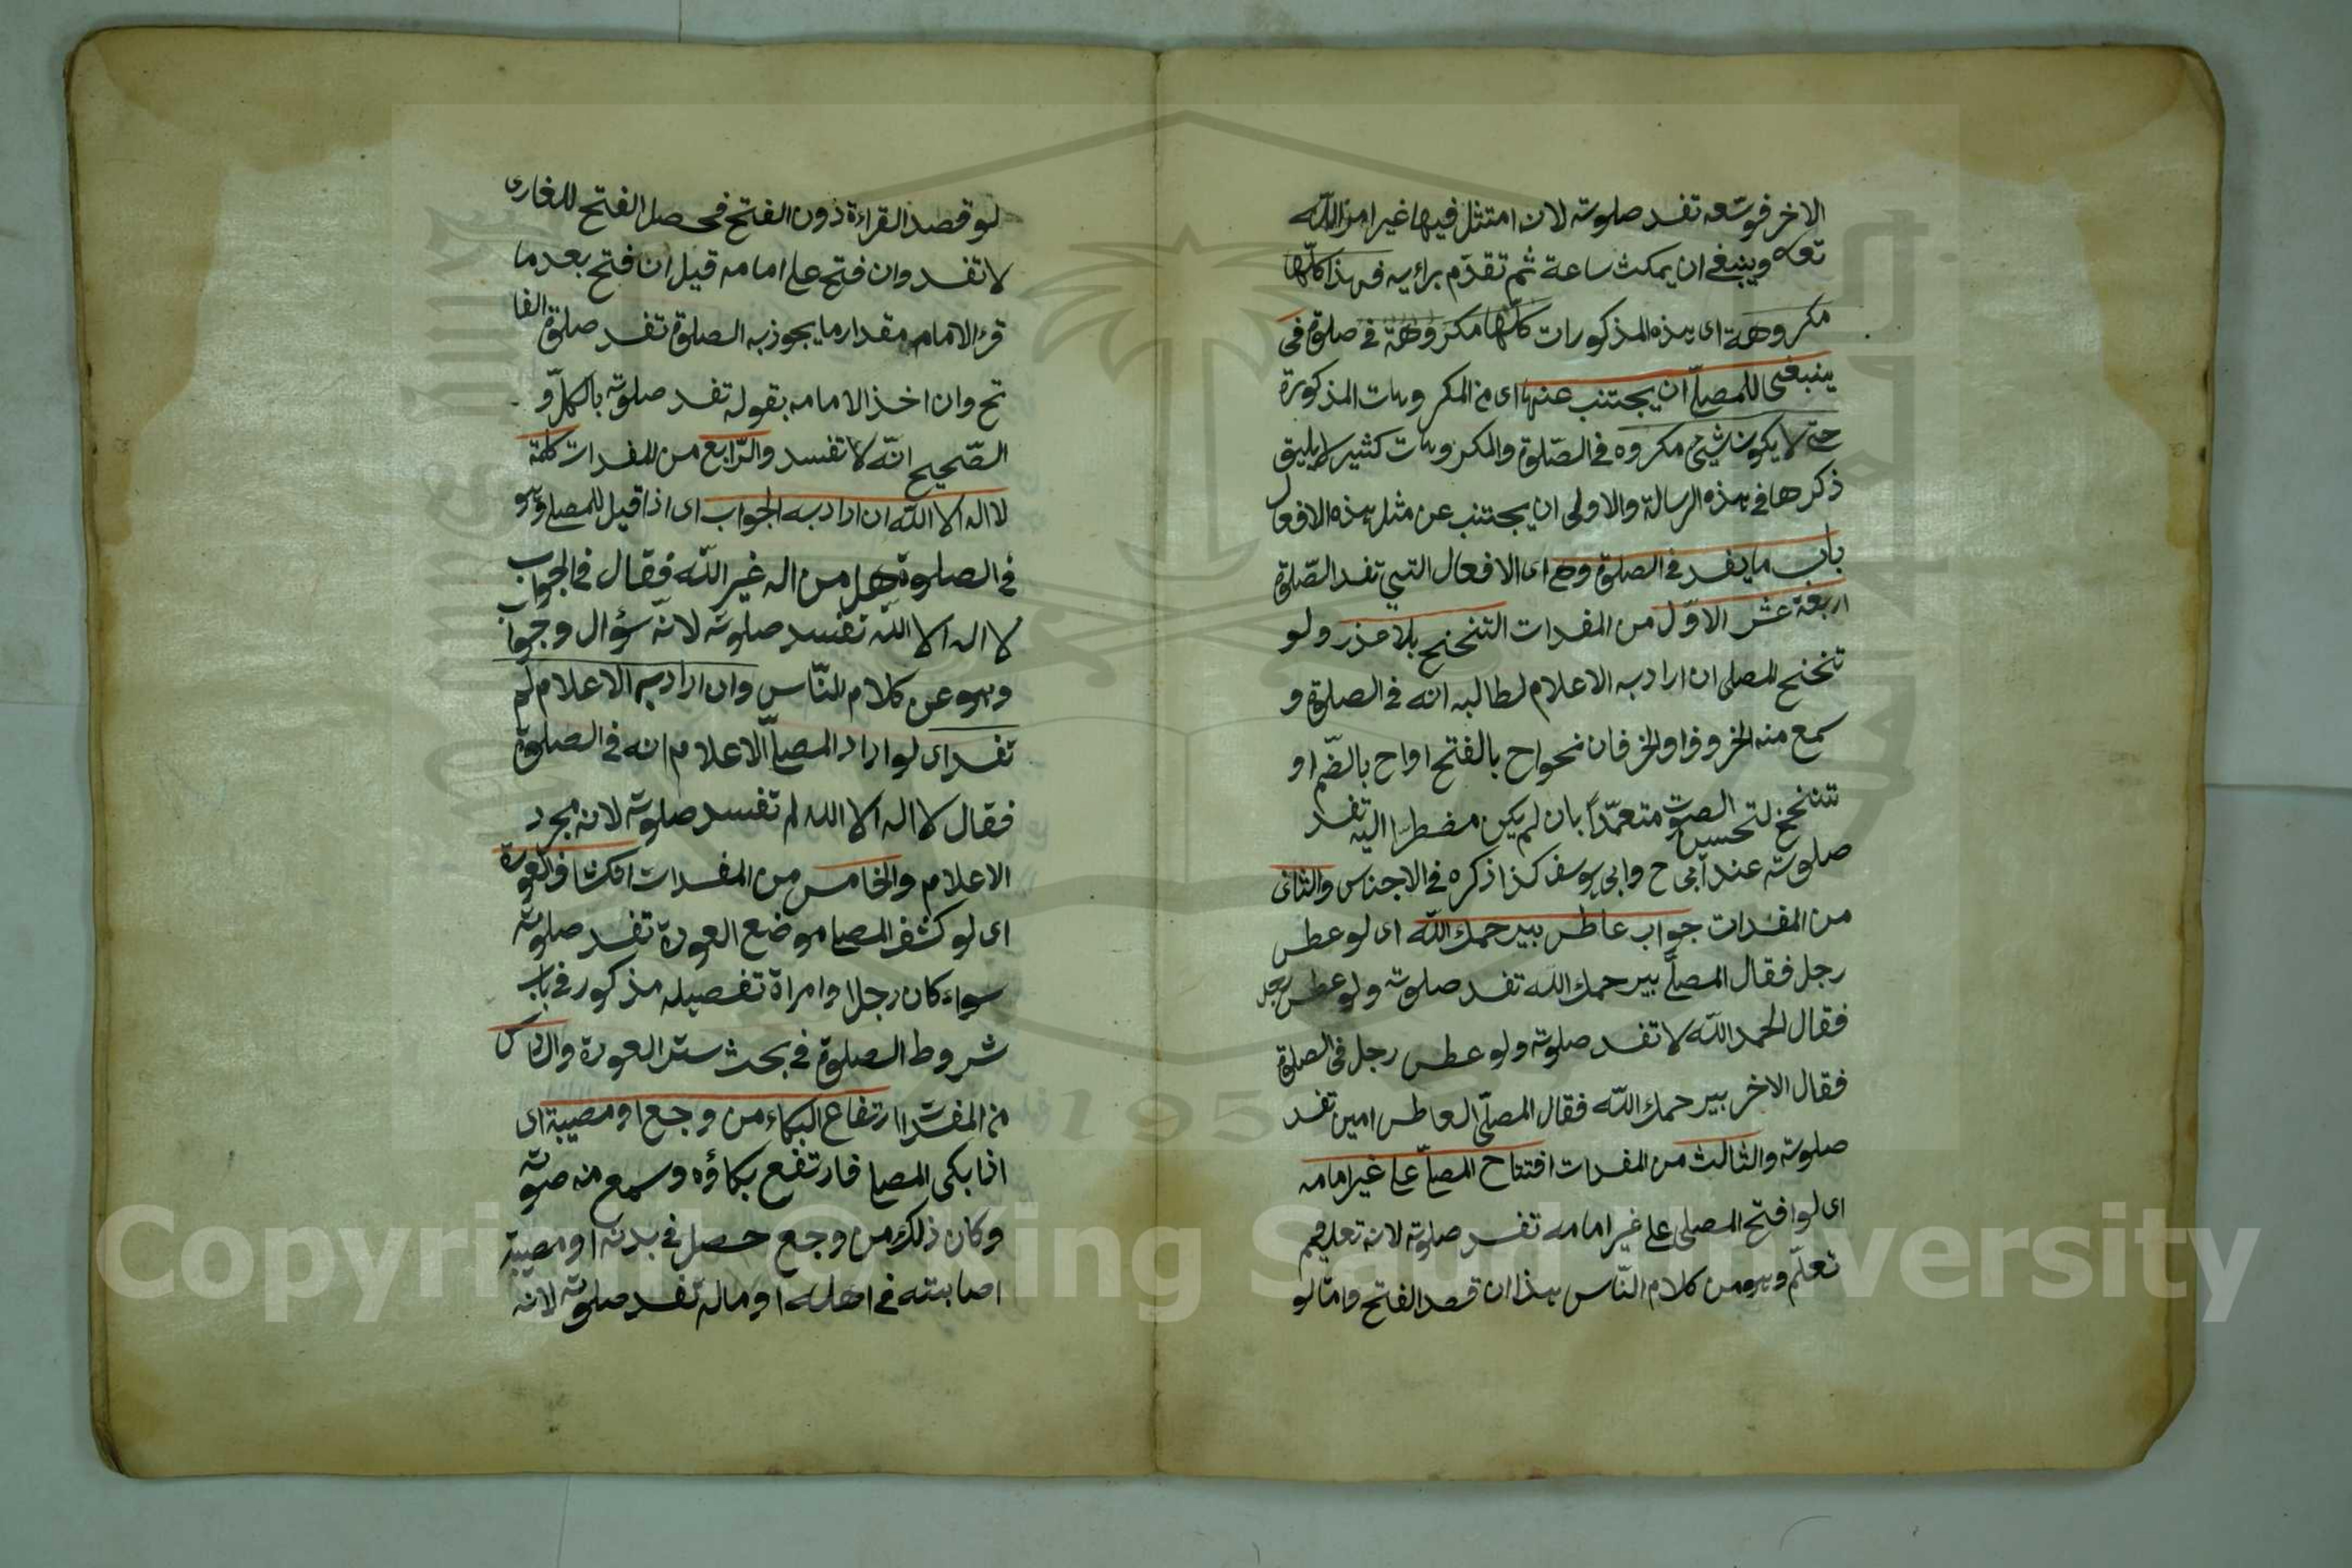 الاخر فوسعه تفسد صلوته لان امتثل فيها غير امر الله
تعه وينبغى ان يمكث ساعة ثم تقدم برائيه فهذا كلها
مكروهة اى هذه المذكورات كلها مكروهة فى صلوة فى
ينبغى للمصلى ان يجتنب عنها اى من المكروهات المذكورة
حتى لا يكون شيئ مكروه فى الصلوة والمكروهات كثير لا يليق
ذكرها فى هذه الرسالة والاولى ان يجتنب عن مثل هذه الافعال
باب ما يفسد فى الصلوة وهى اى الافعال التى تفسد الصلوة
اربعة عشر الاول من المفسدات التنحنح بلا عذر ولو
تنحنح المصلى ان اراد به الاعلام لطالبه انه فى الصلوة و
سمع منه الحروف او الحرفان نحو اح بالفتح او اح بالضم او
تنحنح لتحسين الصوت متعمدا بان لم يكن مضطرا اليه تفسد
صلوته عند ابى ح وابى يوسف كذا ذكره فى الاجناس والثانى
من المفسدات جواب عاطس بيرحمك الله اى لو عطس
رجل فقال المصلى بيرحمك الله تفسد صلوته ولو عطس رجل
فقال الحمد الله لا تفسد صلوته ولو عطس رجل فى الصلوة
فقال الاخر بيرحمك الله فقال المصلى العاطس امين تفسد
صلوته والثالث من المفسدات افتتاح المصلى على غير امامه
اى لو افتح المصلى على غير امامه تفسد صلوته لانه تعليم
تعلم وهو من كلام الناس هذا ان قصد الفتح واما لو
لو قصد القراءة دون الفتح فحصل الفتح للغارى
لا تفسد وان فتح على امامه قيل ان فتح بعد ما
قرء الامام مقدار ما يجوز به الصلوة تفسد صلوة الفا
تح وان اخذ الامامه بقوله تفسد صلوته بالكل و
الصحيح انه لا تفسد والرابع من المفسدات كلمة
لا اله الا الله ان اراد به الجواب اى اذا قيل للمصلى وهو
فى الصلوة هل من اله غير الله فقال فى الجواب
لا اله الا الله تفسد صلوته لانه سؤال وجواب
وهو عن كلام الناس وان اراد به الاعلام لم
تفسد اى لو اراد المصلى الاعلام انه فى الصلوة
فقال لا اله الا الله لم تفسد صلوته لانه مجرد
الاعلام والخامس من المفسدات انكشاف العورة
اى لو كشف المصلى موضع العورة تفسد صلوته
سواء كان رجلا او امراة تفصيله مذكور فى باب
شروط الصلوة فى بحث ستر العورة والسادس
من المفسدات ارتفاع البكاء من وجع او مصيبة اى
اذا بكى المصلى فارتفع بكاؤه وسمع منه صوته
وكان ذلك من وجع حصل فى بدنه او مصيبة
اصابته فى اهله او ماله تفسد صلوته لانه
Copyright © King Saud University
195